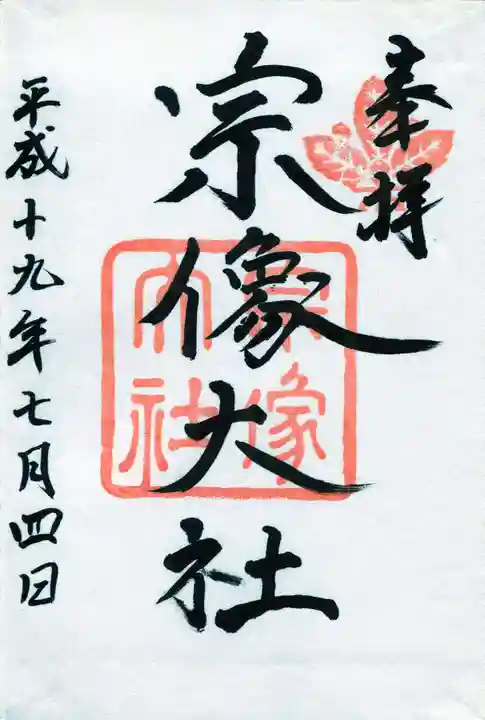 奉拝
宗像大社
宗像
大社
平成十九年七月四日